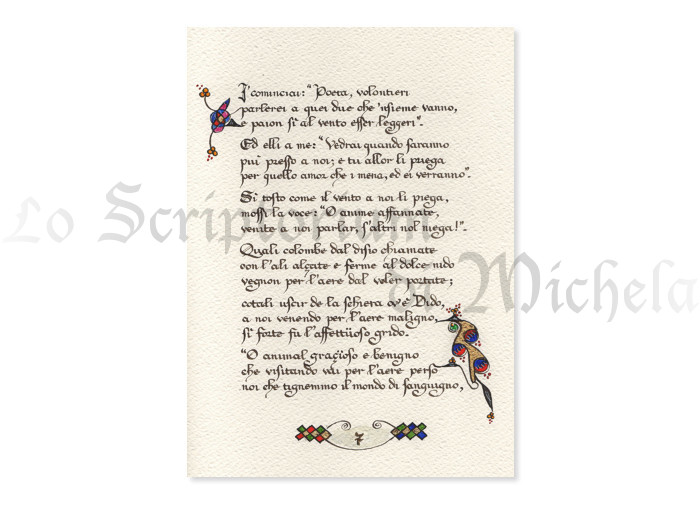 I' cominciai: "Poeta, volontieri
parlerei a quei due che 'nsieme vanno,
e paion sì al vento esser leggeri".
Ed elli a me: "Vedrai quando saranno
più presso a noi; e tu allor li priega
per quello amor che i mena, ed ei verranno".
Sì tosto come il vento a noi li piega,
mossi la voce: "O anime affannate,
venite a noi parlar, s'altri nol niega!".
Quali colombe dal disio chiamate
con l'ali alzate e ferme al dolce nido
vegnon per l'aere dal voler portate;
cotali uscir de la schiera ov'è Dido,
a noi venendo per l'aere maligno,
sì forte fu l'affettüoso grido.
"O animal grazïoso e benigno
che visitando vai per l'aere perso
noi che tignemmo il mondo di sanguigno,
7
Lo Scriptorium
di Michela